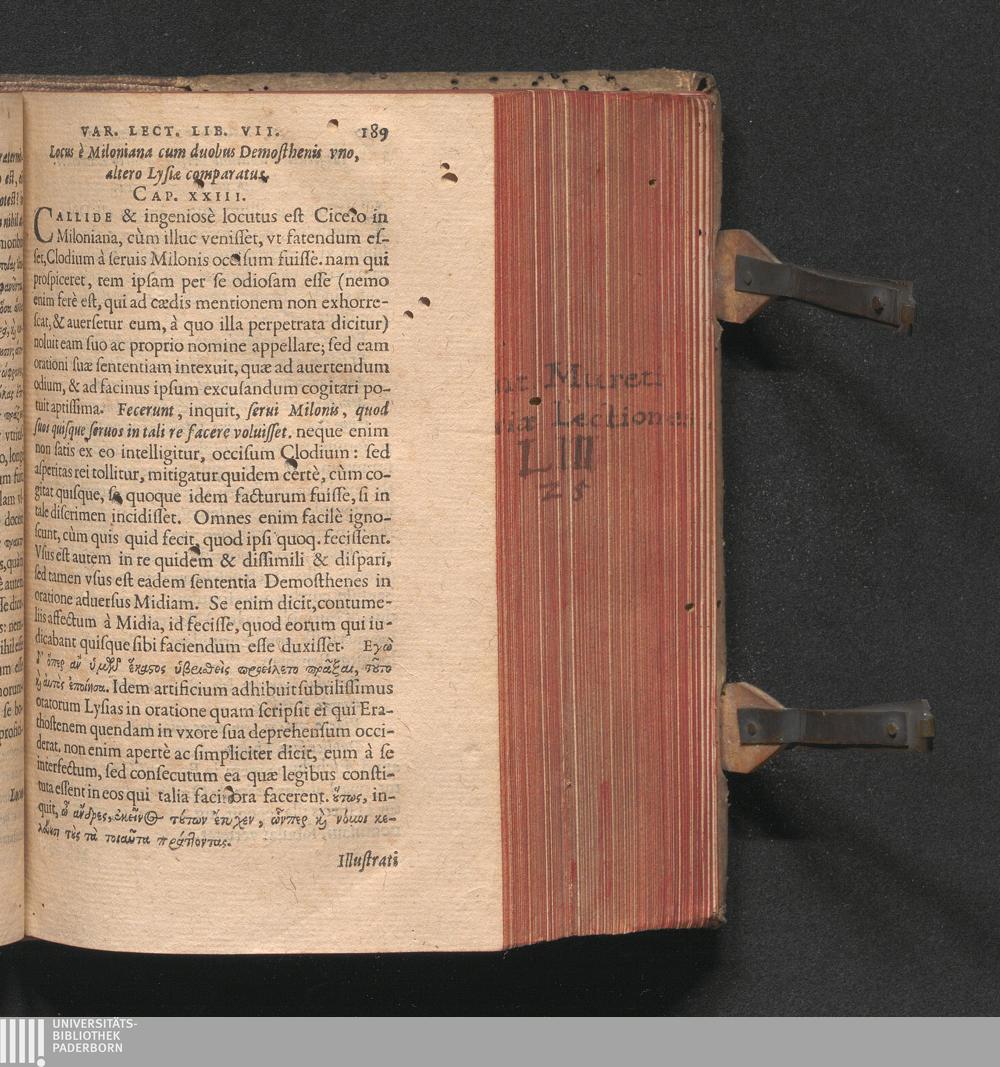 VAR. LECT. LIB. VII. 189
Locus è Miloniana cum duobus Demosthenis vno,
altero Lysiæ comparatus.
CAP. XXIII.
CALLIDE & ingeniosè locutus est Cicero in
Miloniana, cùm illuc venisset, vt fatendum es-
set, Clodium à seruis Milonis occisum fuisse. nam qui
prospiceret, rem ipsam per se odiosam esse (nemo
enim ferè est, qui ad cædis mentionem non exhorre-
scat, & auersetur eum, à quo illa perpetrata dicitur)
noluit eam suo ac proprio nomine appellare; sed eam
orationi suæ sententiam intexuit, quæ ad auertendum
odium, & ad facinus ipsum excusandum cogitari po-
tuit aptissima. Fecerunt, inquit, serui Milonis, quod
suos quisque seruos in tali re facere voluisset. neque enim
non satis ex eo intelligitur, occisum Clodium: sed
asperitas rei tollitur, mitigatur quidem certè, cùm co-
gitat quisque, se quoque idem facturum fuisse, si in
tale discrimen incidisset. Omnes enim facilè igno-
scunt, cùm quis quid fecit, quod ipsi quoq. fecissent.
Vsus est autem in re quidem & dissimili & dispari,
sed tamen vsus est eadem sententia Demosthenes in
oratione aduersus Midiam. Se enim dicit, contume-
liis affectum à Midia, id fecisse, quod eorum qui iu-
dicabant quisque sibi faciendum esse duxisset. Εγὼ
δ' ὅπερ ἂν ὑμῶν ἕκαστος ὑβρισθεὶς προείλετο πρᾶξαι, τοῦτο
καὶ αὐτὸς ἐποίησα. Idem artificium adhibuit subtilissimus
oratorum Lysias in oratione quam scripsit ei qui Era-
thostenem quendam in vxore sua deprehensum occi-
derat. non enim apertè ac simpliciter dicit, eum à se
interfectum, sed consecutum ea quæ legibus consti-
tuta essent in eos qui talia facinora facerent. οὕτως, in-
quit, ὦ ἄνδρες, ἐκεῖνος τούτων ἔτυχεν, ὧνπερ καὶ νόμοι κε-
λεύουσι τοὺς τὰ τοιαῦτα πράττοντας.
Illustrati
Mureti
Lectiones
LIII
25
UNIVERSITÄTS-
BIBLIOTHEK
PADERBORN